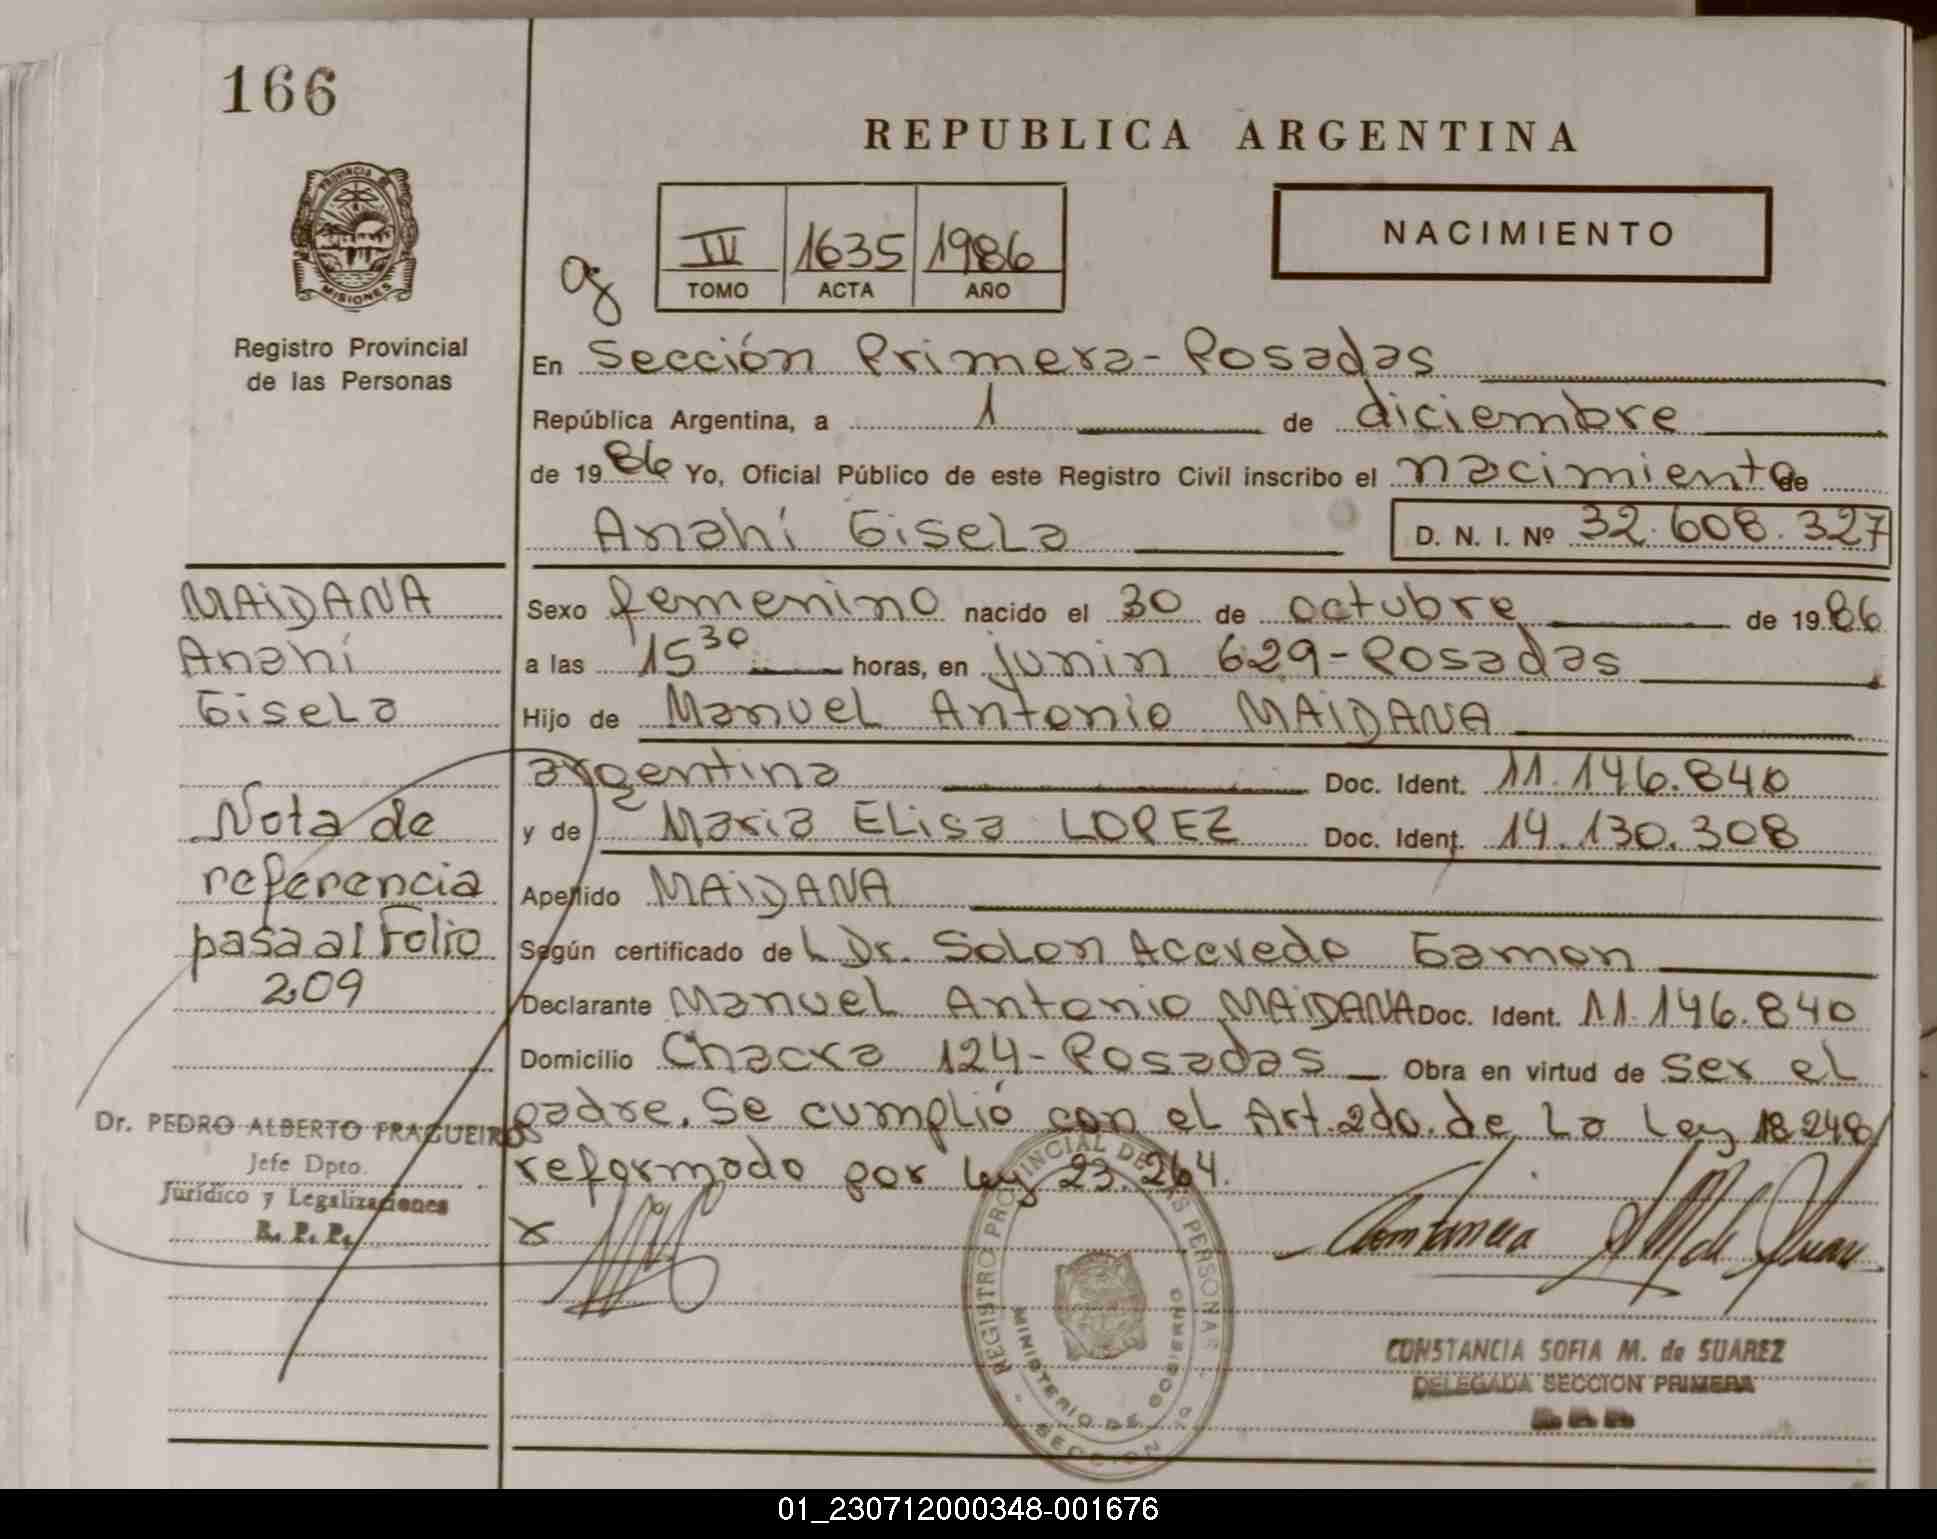 166
REPUBLICA ARGENTINA
PROVINCIA DE
MISIONES
Registro Provincial
de las Personas
IV 1635 1986
TOMO ACTA AÑO
NACIMIENTO
En Sección Primera - Posadas
República Argentina, a 1 de diciembre
de 1986 Yo, Oficial Público de este Registro Civil inscribo el nacimiento de
Anahí Gisela
D. N. I. Nº 32.608.327
MAIDANA
Anahí
Gisela
Sexo femenino nacido el 30 de octubre de 1986
a las 15 30 horas, en junin 629 - Posadas
Hijo de Manuel Antonio MAIDANA
argentina Doc. Ident. 11.146.840
y de Maria Elisa LOPEZ Doc. Ident. 14.130.308
Apellido MAIDANA
Según certificado de L Dr. Solon Acevedo Gamon
Declarante Manuel Antonio MAIDANA Doc. Ident. 11.146.840
Domicilio Chacra 124 - Posadas Obra en virtud de ser el
padre. Se cumplió con el Art. 2do. de La Ley 18248
reformado por ley 23.264.
Nota de
referencia
pasa al Folio
209
Dr. PEDRO ALBERTO FRAGUEIRO
Jefe Dpto.
Jurídico y Legalizaciones
R. P. P.
x
REGISTRO PROVINCIAL DE LAS PERSONAS
MINISTERIO DE GOBIERNO
SECCION 1a
Constancia S M de Suarez
CONSTANCIA SOFIA M. de SUAREZ
DELEGADA SECCION PRIMERA
01_230712000348-001676